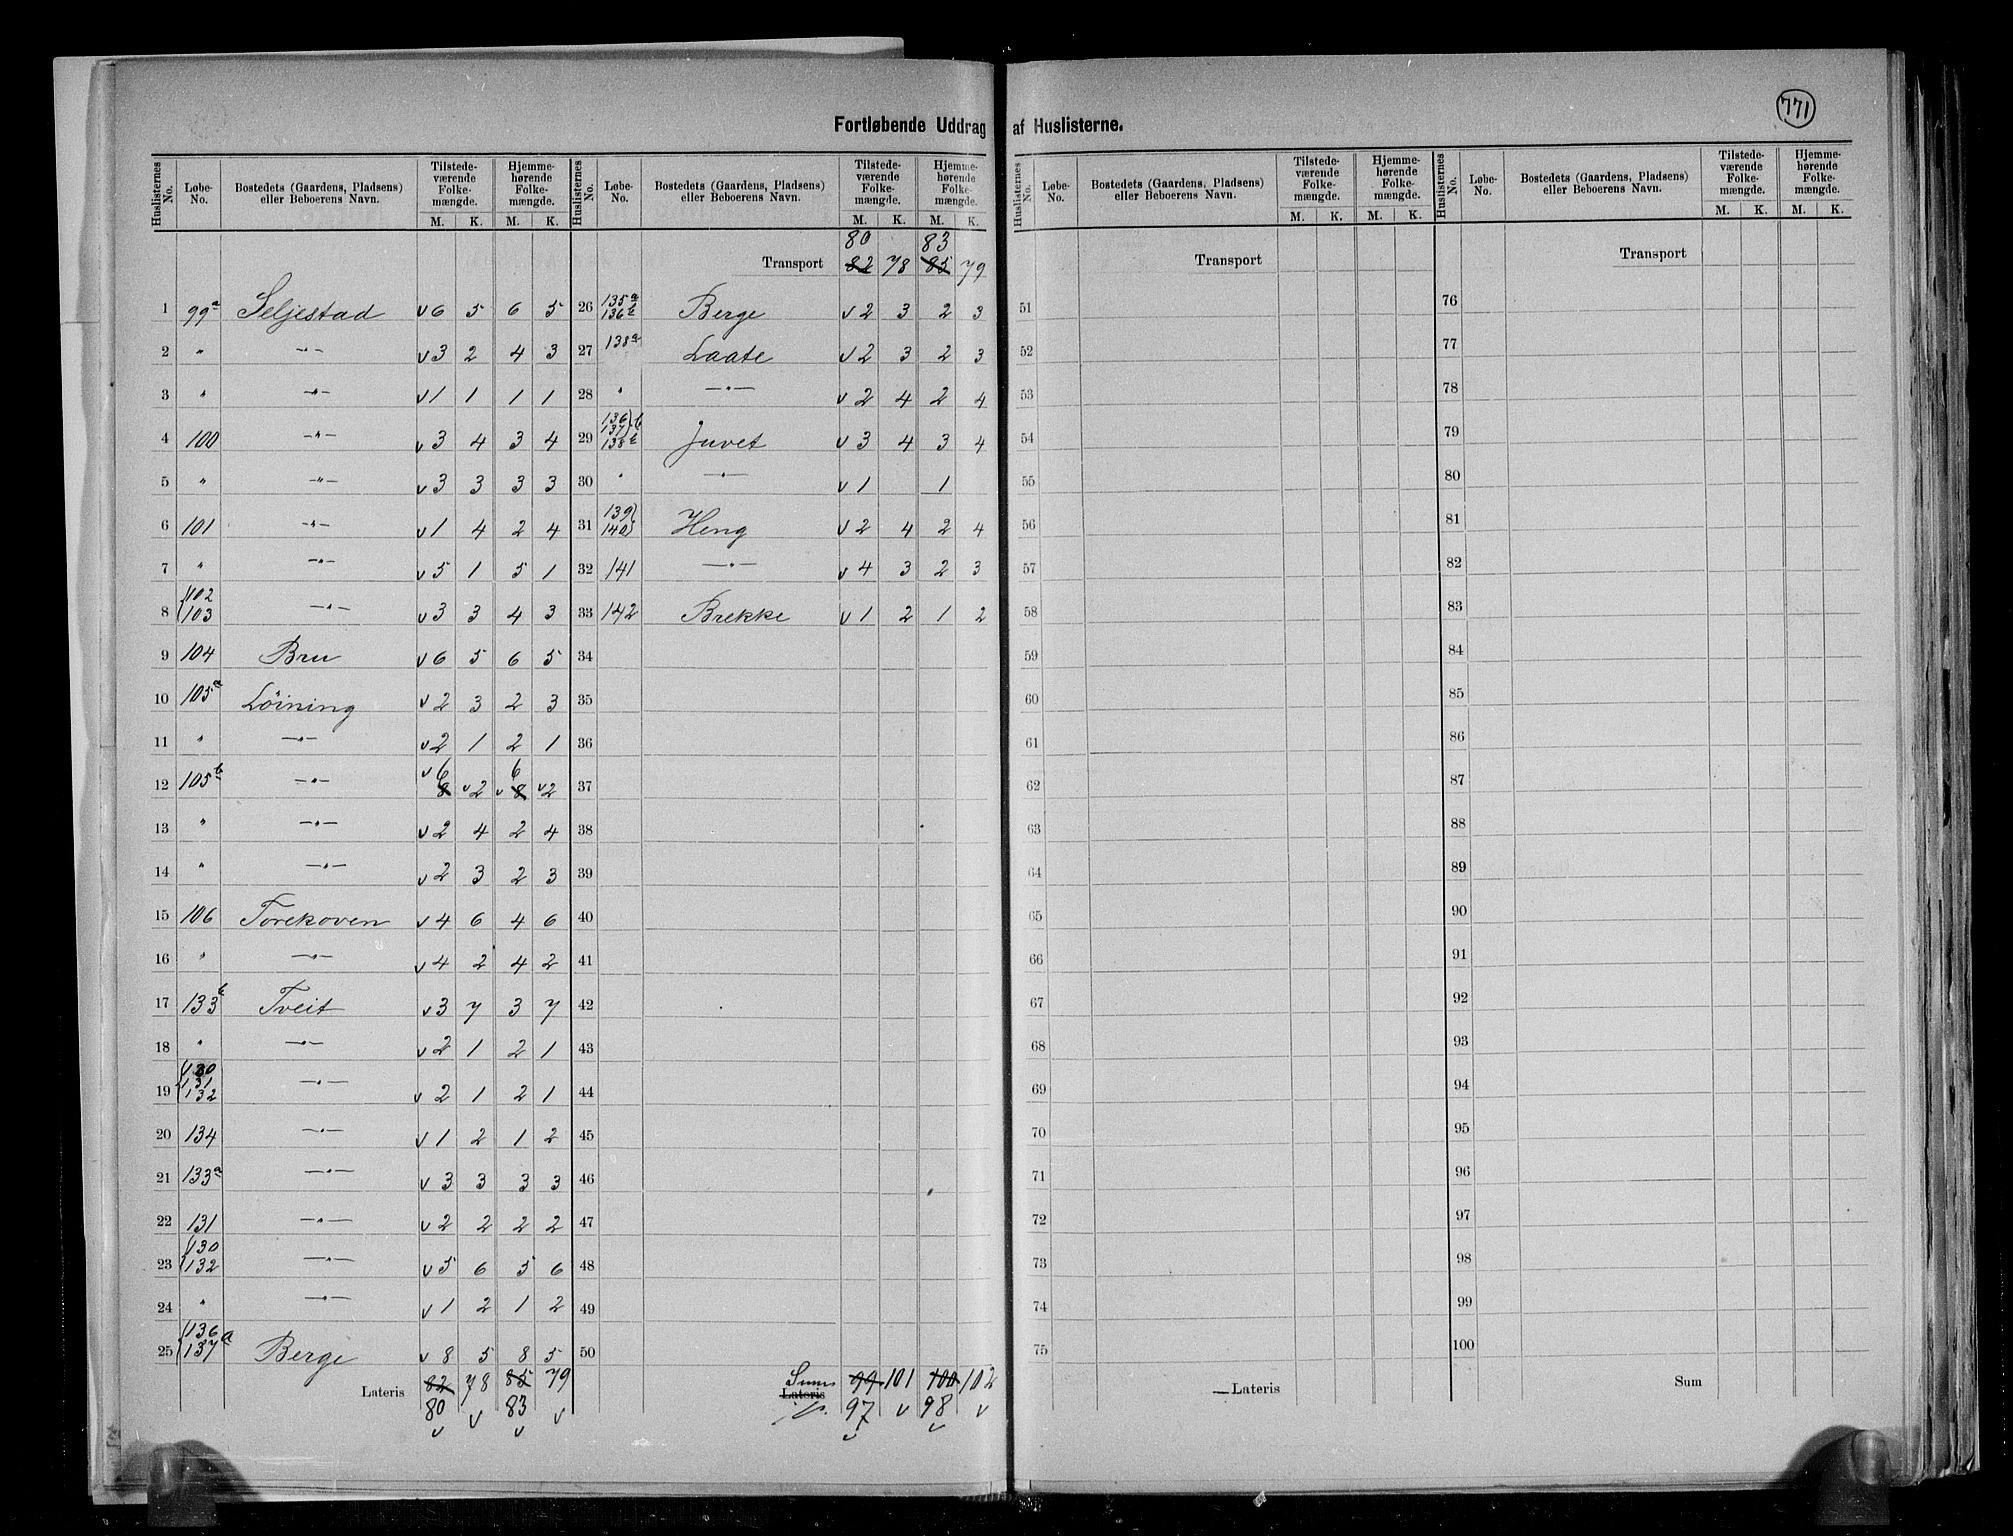 771
Fortløbende Uddrag af Huslisterne.
Huslisternes No. Løbe-No. Bostedets (Gaardens, Pladsens) eller Beboerens Navn. Tilstedeværende Folkemængde. M. K. Hjemmehørende Folkemængde. M. K.
1 99a Seljestad v6 5 6 5
2 " —"— v3 2 4 3
3 " —"— v1 1 1 1
4 100 —"— v3 4 3 4
5 " —"— v3 3 3 3
6 101 —"— v1 4 2 4
7 " —"— v5 1 5 1
8 {102 103 —"— v3 3 4 3
9 104 Bru v6 5 6 5
10 105a Löining v2 3 2 3
11 " —"— v2 1 2 1
12 105b —"— v6 8 v2 v 6 8 v2
13 " —"— v2 4 2 4
14 " —"— v2 3 2 3
15 106 Torekoven v4 6 4 6
16 " —"— v4 2 4 2
17 133b Tveit v3 7 3 7
18 " —"— v2 1 2 1
19 {130 131 132 —"— v2 1 2 1
20 134 —"— v1 2 1 2
21 133a —"— v3 3 3 3
22 131 —"— v2 2 2 2
23 {130 132 —"— v5 6 5 6
24 " —"— v1 2 1 2
25 {136 137 a Berge v8 5 8 5
Lateris 82 78 85 79
80 v 83 v
v v
Huslisternes No. Løbe-No. Bostedets (Gaardens, Pladsens) eller Beboerens Navn. Tilstedeværende Folkemængde. M. K. Hjemmehørende Folkemængde. M. K.
80 83
Transport 82 78 85 79
26 135a 136b Berge v2 3 2 3
27 138a Laate v2 3 2 3
28 " —"— v2 4 2 4
29 136 137 }b 138b Juvet v3 4 3 4
30 " —"— v1 1
31 139 140 } Heng v2 4 2 4
32 141 —"— v4 3 2 3
33 142 Brekke v1 2 1 2
34
35
36
37
38
39
40
41
42
43
44
45
46
47
48
49
50
Summ Lateris 99 101 100 102
97 v 98 v
v v
Huslisternes No. Løbe-No. Bostedets (Gaardens, Pladsens) eller Beboerens Navn. Tilstedeværende Folkemængde. M. K. Hjemmehørende Folkemængde. M. K.
Transport
51
52
53
54
55
56
57
58
59
60
61
62
63
64
65
66
67
68
69
70
71
72
73
74
75
Lateris
Huslisternes No. Løbe-No. Bostedets (Gaardens, Pladsens) eller Beboerens Navn. Tilstedeværende Folkemængde. M. K. Hjemmehørende Folkemængde. M. K.
Transport
76
77
78
79
80
81
82
83
84
85
86
87
88
89
90
91
92
93
94
95
96
97
98
99
100
Sum